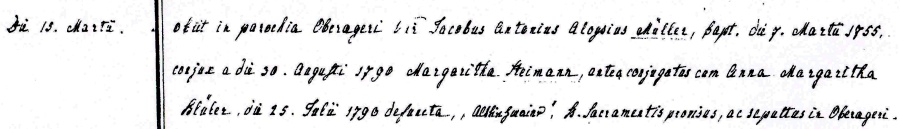 Die 15. Martii. obiit in parochia Oberageri Jacobus Antonius Aloysius Müller, bapt. die 7. Martii 1755.
conjux a die 30. Augusti 1790 Margaritha Heimann, antea conjugatus cum Anna Margaritha
Bläter, die 25. Julii 1790 defuncta, S. Sacramentis provisus, ac sepultus in Oberageri.